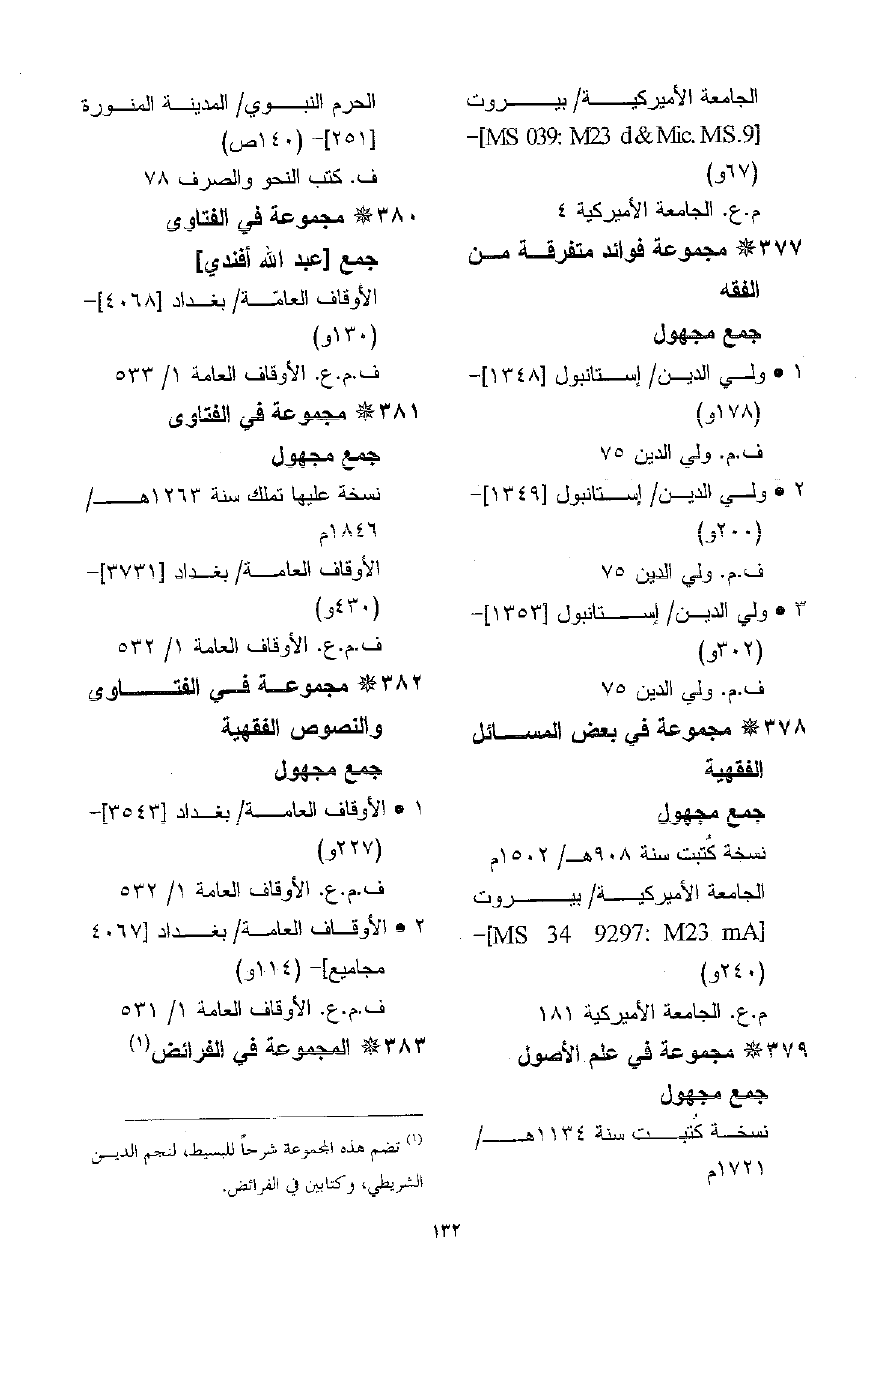 الجامعة الأميركية/ بيروت
[MS 039: M23 d&Mic. MS.9]-
(٦٧و)
م.ع. الجامعة الأميركية ٤
٣٧٧* مجموعة فوائد متفرقة من
الفقه
جمع مجهول
١ • ولي الدين/ إستانبول [١٣٤٨]-
(١٧٨و)
ف.م. ولي الدين ٧٥
٢ • ولي الدين/ إستانبول [١٣٤٩]-
(٢٠٠و)
ف.م. ولي الدين ٧٥
٣ • ولي الدين/ إستانبول [١٣٥٣]-
(٣٠٢و)
ف.م. ولي الدين ٧٥
٣٧٨* مجموعة في بعض المسائل
الفقهية
جمع مجهول
نسخة كُتبت سنة ٩٠٨هـ/ ١٥٠٢م
الجامعة الأميركية/ بيروت
[MS 34 9297: M23 mA]-
(٢٤٠و)
م.ع. الجامعة الأميركية ١٨١
٣٧٩* مجموعة في علم الأصول
جمع مجهول
نسخة كُتبت سنة ١١٣٤هـ/
١٧٢١م
الحرم النبوي/ المدينة المنورة
[٢٥١]- (١٤٠ص)
ف. كتب النحو والصرف ٧٨
٣٨٠* مجموعة في الفتاوى
جمع [عبد الله أفندي]
الأوقاف العامّة/ بغداد [٤٠٦٨]-
(١٣٠و)
ف.م.ع. الأوقاف العامة ١/ ٥٣٣
٣٨١* مجموعة في الفتاوى
جمع مجهول
نسخة عليها تملك سنة ١٢٦٣هـ/
١٨٤٦م
الأوقاف العامة/ بغداد [٣٧٣١]-
(٤٣٠و)
ف.م.ع. الأوقاف العامة ١/ ٥٣٢
٣٨٢* مجموعة في الفتاوى
والنصوص الفقهية
جمع مجهول
١ • الأوقاف العامة/ بغداد [٣٥٤٣]-
(٢٢٧و)
ف.م.ع. الأوقاف العامة ١/ ٥٣٢
٢ • الأوقاف العامة/ بغداد [٤٠٦٧
مجاميع]- (١١٤و)
ف.م.ع. الأوقاف العامة ١/ ٥٣١
٣٨٣* المجموعة في الفرائض(١)
(١) تضم هذه المجموعة شرحاً للبسيط، لنجم الدين
الشريطي، وكتابين في الفرائض.
١٣٢